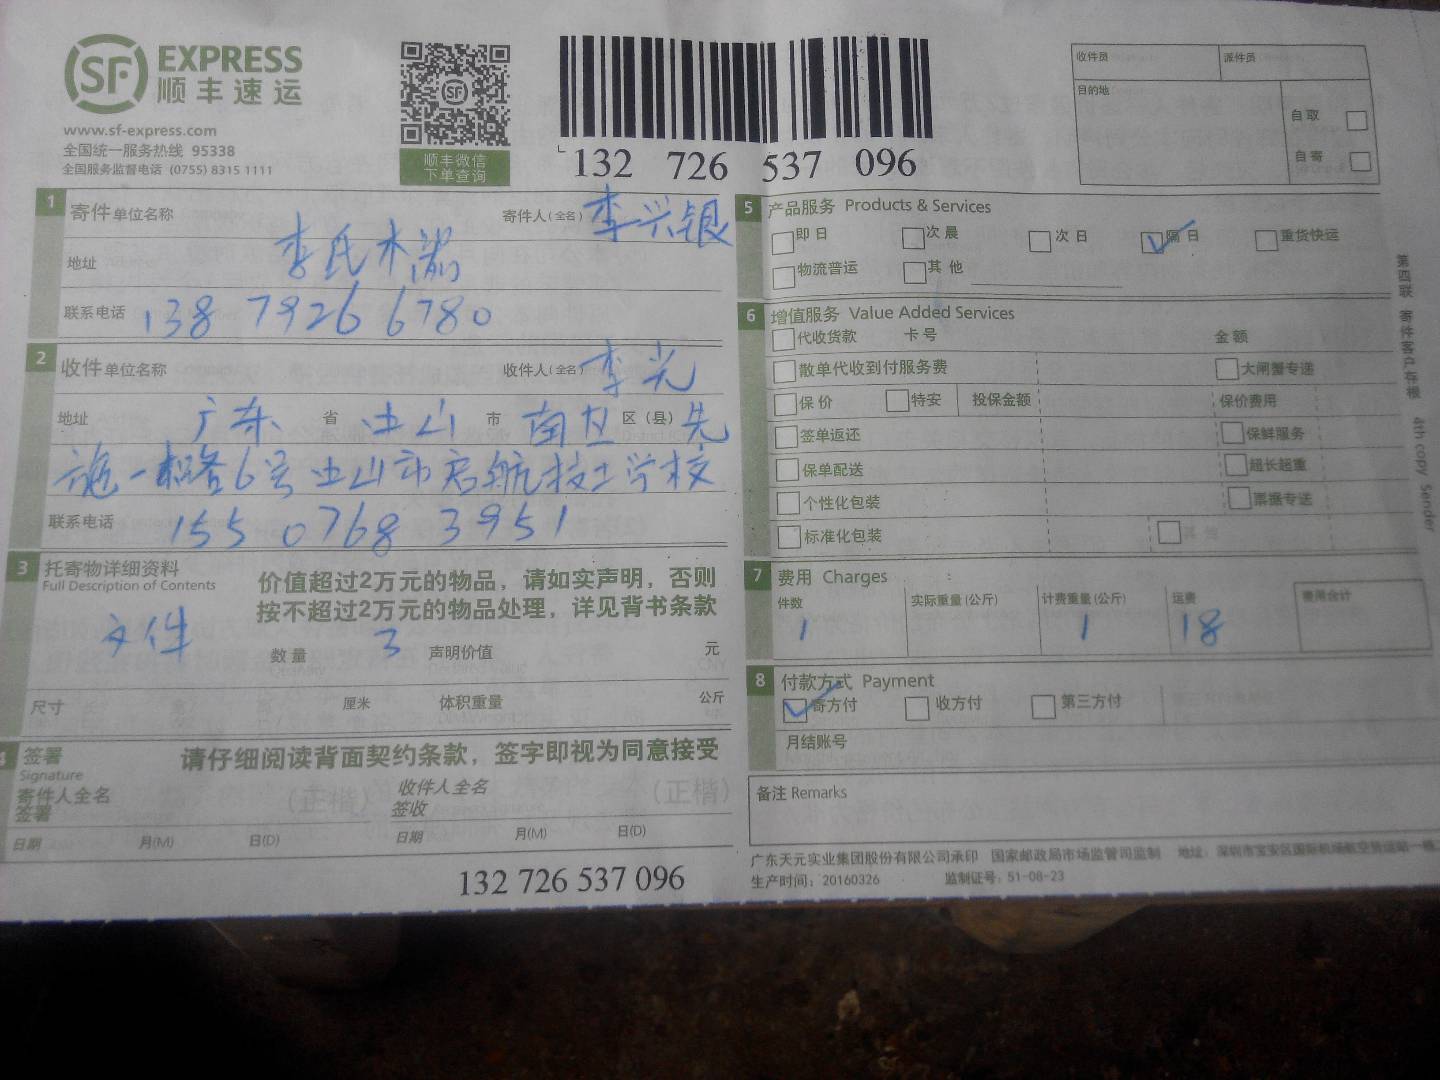 SF EXPRESS
顺丰速运
www.sf-express.com
全国统一服务热线 95338
全国服务监督电话 (0755) 8315 1111
顺丰微信
下单查询
132 726 537 096
收件员 派件员
目的地
自取
自寄
1 寄件单位名称 寄件人(全名) 李兴银
李氏木
地址
联系电话 138 7926 6780
2 收件单位名称 收件人(全名) 李光
地址 广东 省 中山 市 南区 区(县) 先
施一路6号中山市启航技工学校
联系电话 155 0768 3951
3 托寄物详细资料
Full Description of Contents
价值超过2万元的物品，请如实声明，否则
按不超过2万元的物品处理，详见背书条款
文件 数量 3 声明价值 元
尺寸 厘米 体积重量 公斤
4 签署
Signature
请仔细阅读背面契约条款，签字即视为同意接受
寄件人全名
签署 (正楷)
收件人全名
签收 (正楷)
日期 月(M) 日(D) 日期 月(M) 日(D)
132 726 537 096
5 产品服务 Products & Services
即日 次晨 次日 隔日 重货快运
物流普运 其他
6 增值服务 Value Added Services
代收货款 卡号 金额
散单代收到付服务费 大闸蟹专递
保价 特安 投保金额 保价费用
签单返还 保鲜服务
保单配送 超长超重
个性化包装 票据专送
标准化包装 其他
7 费用 Charges
件数 实际重量(公斤) 计费重量(公斤) 运费 费用合计
1 1 18
8 付款方式 Payment
寄方付 收方付 第三方付
月结账号
备注 Remarks
广东天元实业集团股份有限公司承印 国家邮政局市场监管司监制 地址：深圳市宝安区国际机场航空货运站一楼
生产时间：20160326 监制证号：51-08-23
第四联 寄件客户存根 4th copy Sender